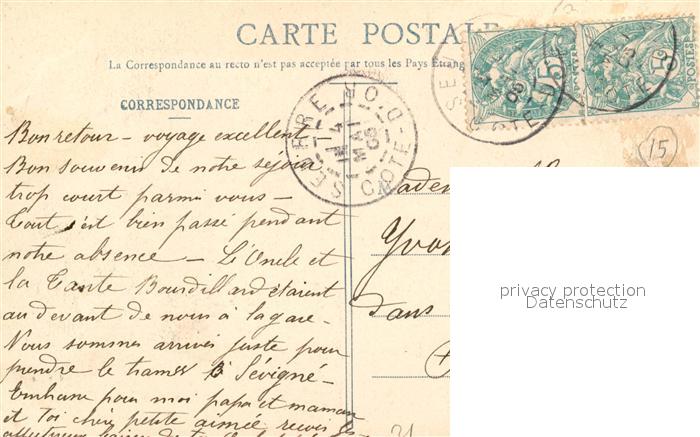 CARTE POSTALE
La Correspondance au recto n'est pas acceptée par tous les Pays Etrang
CORRESPONDANCE
SEURRE
COTE-D'OR
4 MAI
15
Bon retour – voyage excellent –
Bon souvenir de notre séjour
trop court parmi vous –
Tout s'est bien passé pendant
notre absence – L'Oncle et
la Tante Bourdillard étaient
au devant de nous à la gare –
Nous sommes arrivés juste pour
prendre le Sévigné –
Embrasse pour moi papa et maman
et toi chère petite aimée reçois
adem
Yvon
dans
privacy protection
Datenschutz
21